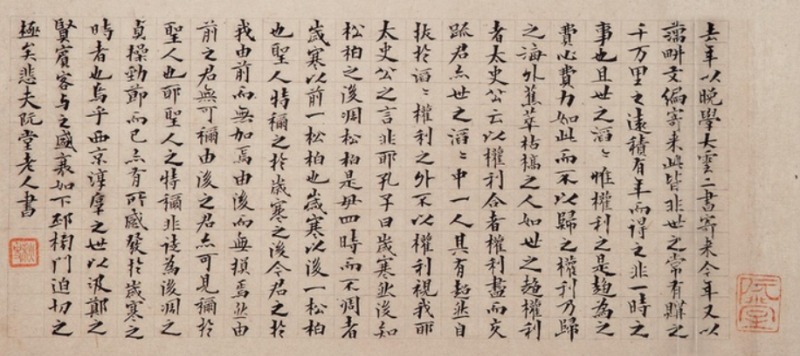 去年以晚學大雲二書寄來今年又以
藕畊文編寄來此皆非世之常有購之
千万里之遠積有年而得之非一時之
事也且世之滔〻惟權利之是趨為之
費心費力如此而不以歸之權利乃歸
之海外蕉萃枯槁之人如世之趨權利
者太史公云以權利合者權利盡而交
踈君亦世之滔〻中一人其有超然自
拔於滔〻權利之外不以權利視我耶
太史公之言非耶孔子曰歲寒然後知
松柏之後凋松柏是毋四時而不凋者
歲寒以前一松柏也歲寒以後一松柏
也聖人特稱之於歲寒之後今君之於
我由前而無加焉由後而無損焉然由
前之君無可稱由後之君亦可見稱於
聖人也耶聖人之特稱非徒為後凋之
貞操勁節而已亦有所感發於歲寒之
時者也烏乎西京淳厚之世以汲鄭之
賢賓客与之盛衰如下邳榜門迫切之
極矣悲夫阮堂老人書
阮堂